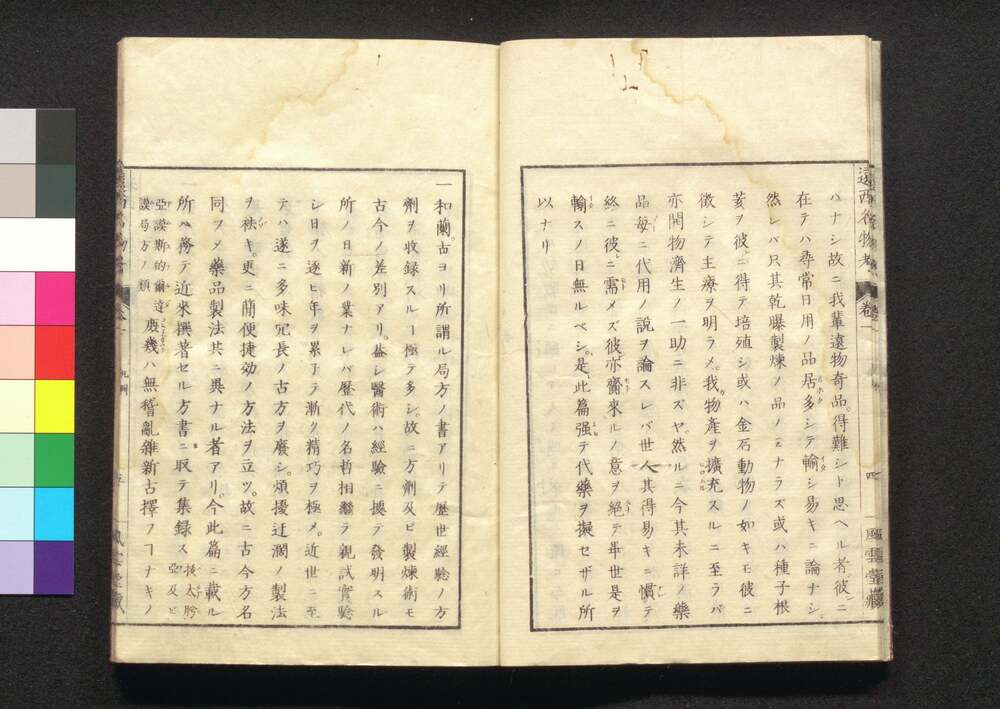 遠西名物考 卷一
四
風雲堂藏
ハナシ故ニ我輩遠物奇品得難シト思ヘル者彼ニ
在テハ尋常日用ノ品居多シテ輸シ易キニ論ナシ
然レバ只其乾曝製煉ノ品ノミナラズ或ハ種子根
荄ヲ彼ニ得テ培殖シ或ハ金石動物ノ如キモ彼ニ
徴シテ主療ヲ明ラメ我物產ヲ擴充スルニ至ラバ
亦開物濟生ノ一助ニ非ズヤ然ルニ今其未詳ノ藥
品每ニ代用ノ說ヲ論スレバ世人其得易キニ慣テ
終ニ彼ニ需メズ彼亦齎來ルノ意ヲ絕テ畢世是ヲ
輸スノ日無ルベシ是此篇强テ代藥ヲ擬セザル所
以ナリ
一和蘭古ヨリ所謂ル局方ノ書アリテ歷世經驗ノ方
劑ヲ收録スルヿ極テ多シ故ニ方劑及ビ製煉術モ
古今ノ差別アリ益シ醫術ハ經驗ニ據テ發明スル
所ノ日新ノ業ナレバ歷代ノ名哲相繼テ親試實驗
シ日ヲ逐ヒ年ヲ累子テ漸ク精巧ヲ極メ近世ニ至
テハ遂ニ多味冗長ノ古方ヲ廢シ煩擾迂濶ノ製法
ヲ袪キ更ニ簡便捷効ノ方法ヲ立ツ故ニ古今方名
同フメ藥品製法共ニ異ナル者アリ今此篇ニ載ル
所ハ務テ近來撰著セル方書ニ取テ集録ス
扶太𦙾
亞及ビ
亞謨斯的爾達
謨局方ノ類
庶幾ハ無稽亂雜新古擇フヿナキノ